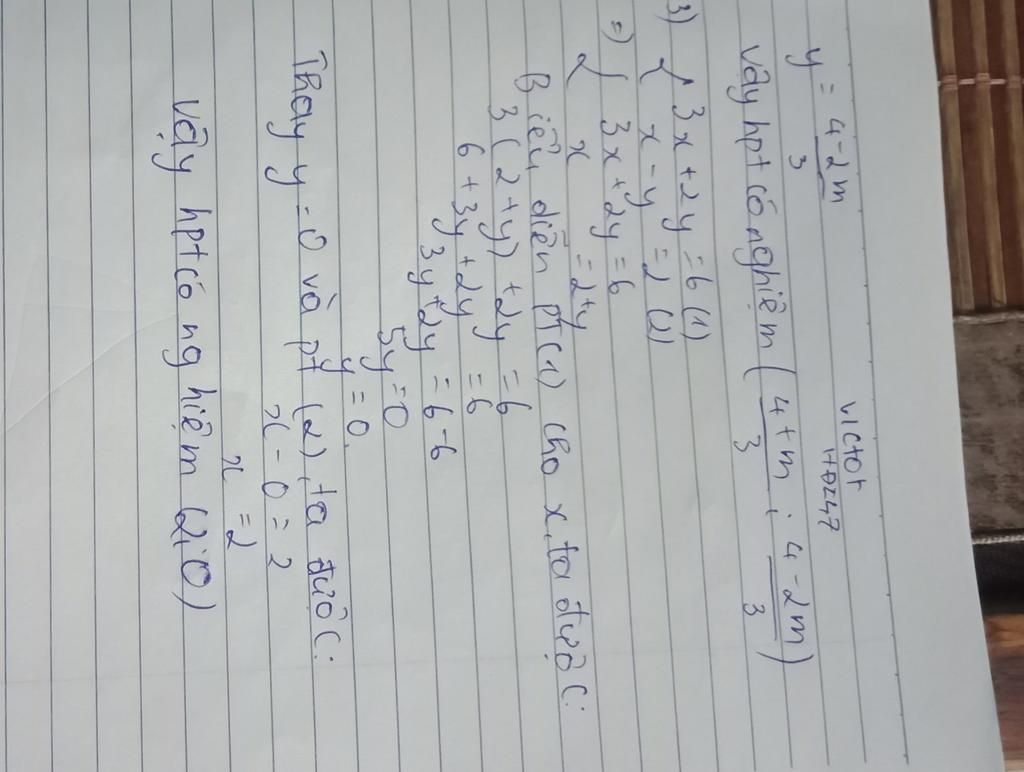 victor
y = 4-2m/3
Vậy hpt có nghiệm (4+m/3 ; 4-2m/3)
3) { 3x+2y=6 (1)
x-y=2 (2)
=) { 3x+2y=6
x =2+y
Biểu diễn pt(1) cho x, ta được:
3(2+y)+2y=6
6+3y+2y=6
3y+2y=6-6
5y=0
y=0
Thay y=0 và pt (2), ta được:
x-0=2
x=2
Vậy hpt có nghiệm (2;0)